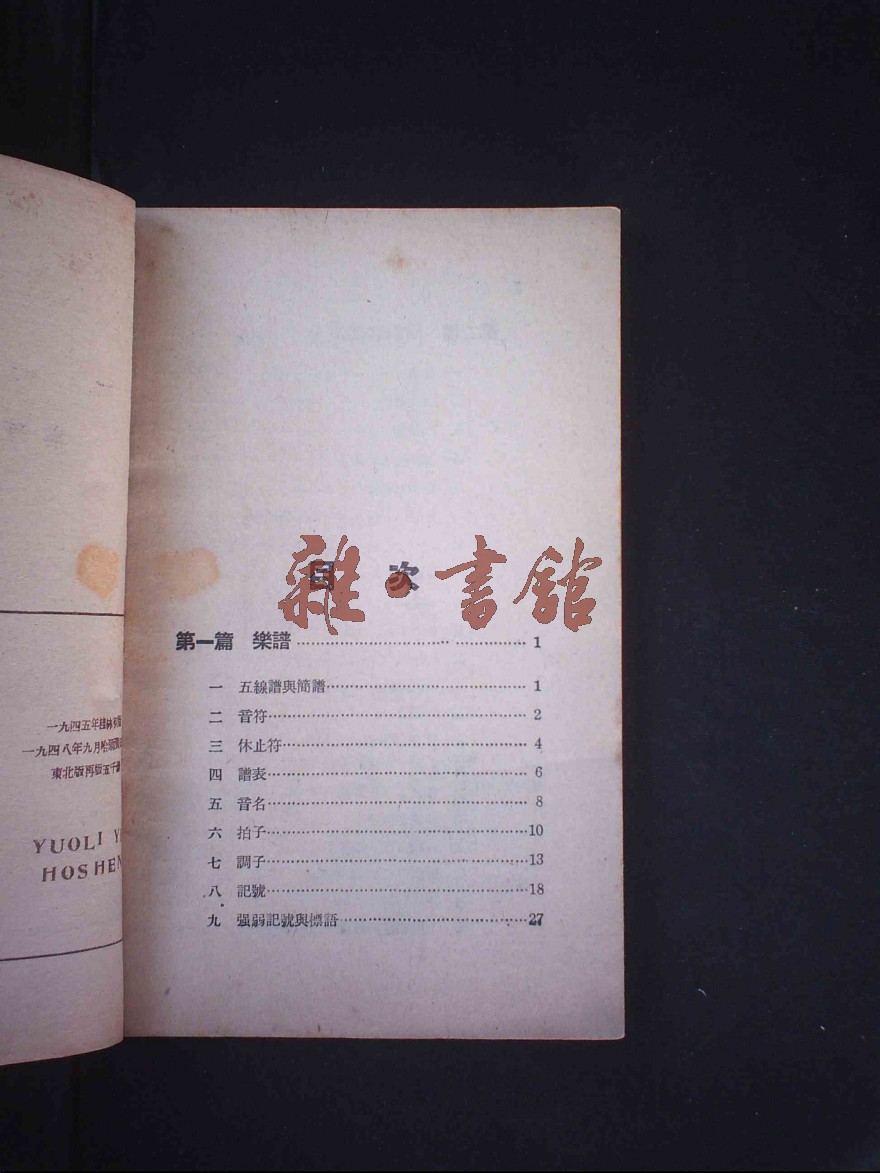 一九四五年桂林
一九四八年九月哈
東北版再版五千
YUOLI Y
HOSHEN
雜·書館
目 次
第一篇 樂譜 1
一 五線譜與簡譜 1
二 音符 2
三 休止符 4
四 譜表 6
五 音名 8
六 拍子 10
七 調子 13
八 記號 18
九 强弱記號與標語 27